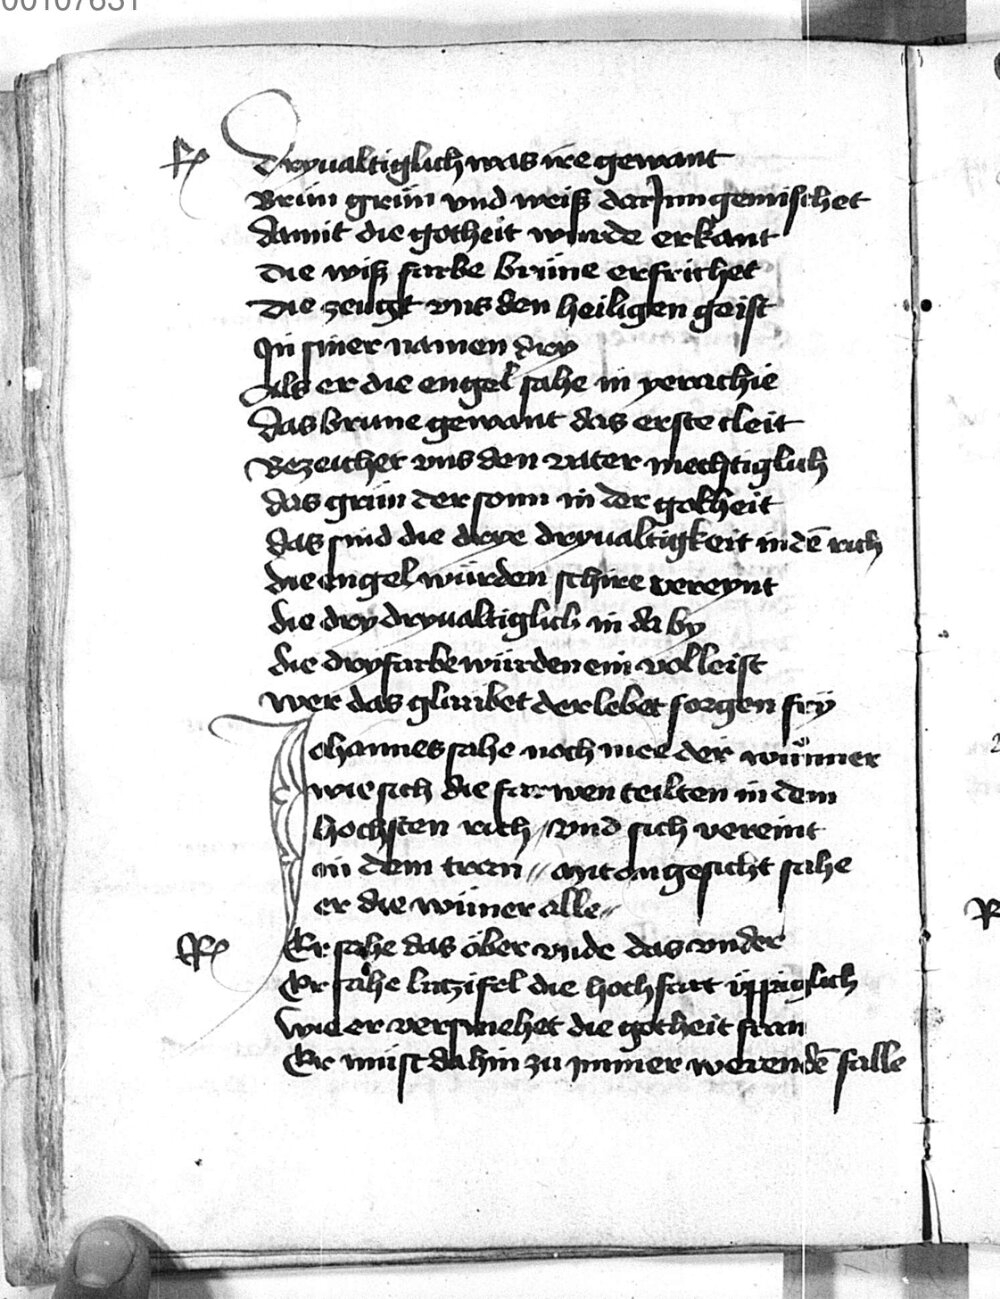 00107631
Dryualtiglich was ire gewant
Brün grün vnd weiß darJnn gemischet
damit die gotheit wurde erkant
die wiß farbe brüne erfrichet
die zeugt vns den heiligen geist
Jn siner namen dry
Als er die engel sahe in yerarchie
das brune gewant das erste cleit
Bezeichet vns den vater mechtiglich
das grün der sonn in der gotheit
das sind die drye dryualtigkeit in dē rich
die engel würden schire vereynt
die dry dryualtiglich in da by
die dry farbe würden ein volleist
wer das glaubet der lebet sorgen fry
Johannes sahe noch mee der wunner
wie sich die farwen teilten in dem
hochsten rich // vnd sich vereint
in dem tron // mit angesicht sahe
er die wuner alle //
Er sahe das ober vnde das vnder
Er sahe lutzifel die hochfart üppiglich
wie er versmehet die gotheit fran
Er müst dahin zu ymmer werendē falle